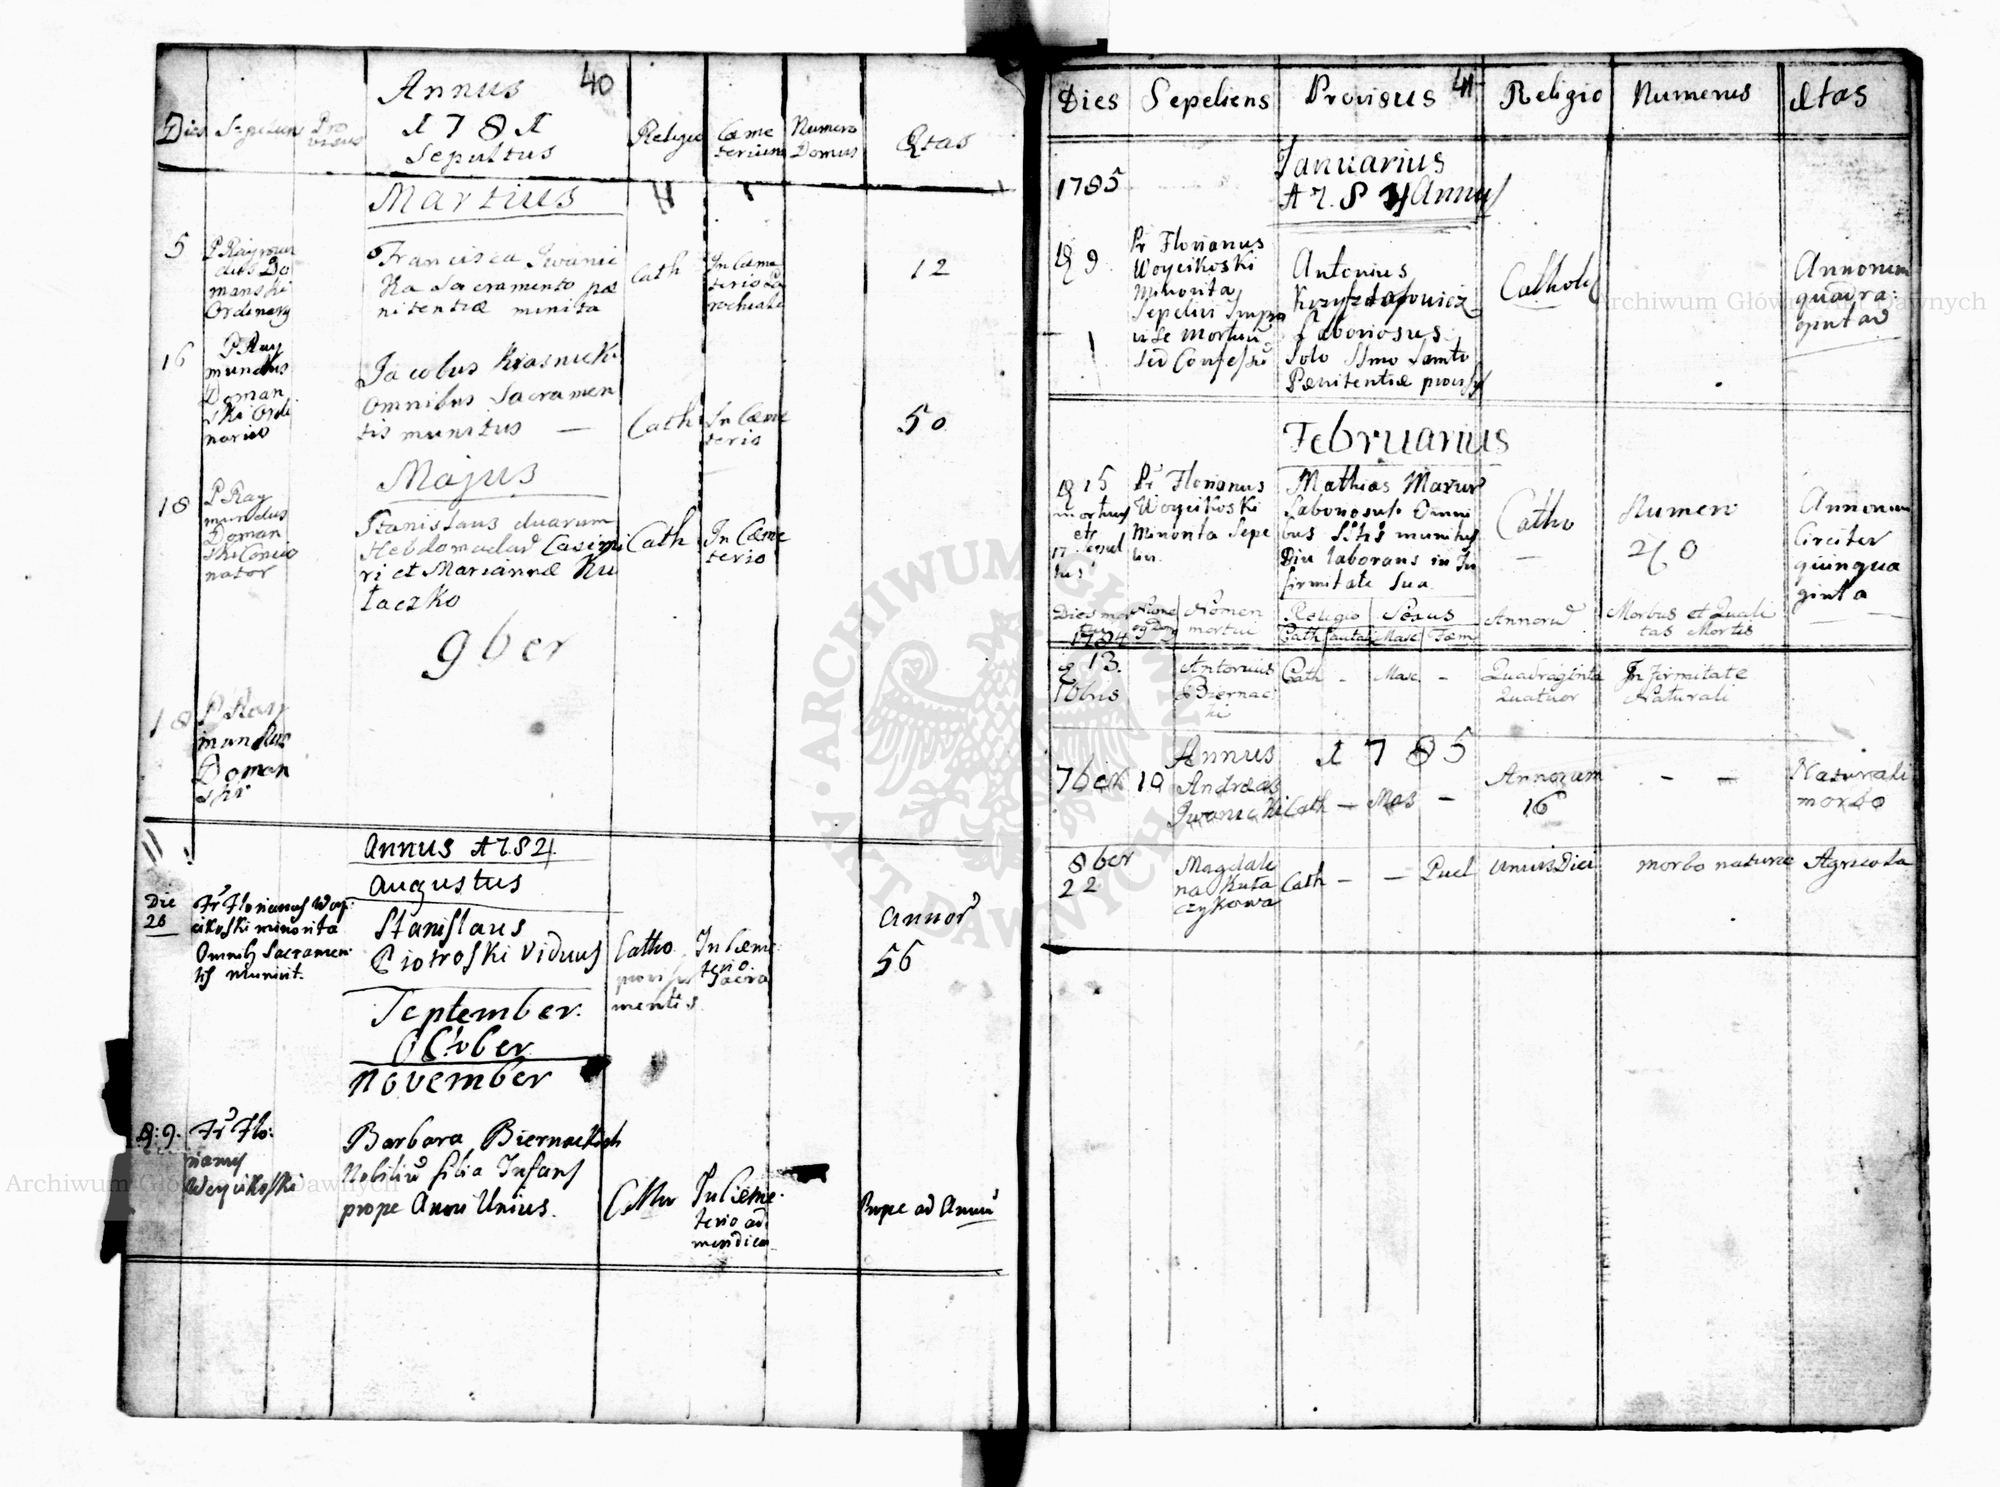 40
Annus
1781
Sepultus
Dies
Sepeliens
Pro
visus
Religio
Cæme
terium
Numero
Domus
Ætas
Martius
5
P Raymun
dus Do
manski
Ordinary
Francisca Iwanic
Ka Sacramento pæ
nitentiæ munita
Cath
In Cæme
terio Pa
rochiale
12
16
P. Ray
mundus
Doman
ski Ordi
narius
Jacobus Krasnicki
Omnibus Sacramen
tis munitus —
Cath
In Cæme
terio
50
Majus
18
P Ray
mundus
Doman
ski Concio
nator
Stanislaus duarum
Hebdomadarum Casimi
ri et Mariannæ Ku
taczko
Cath
In Cæme
terio
9ber
18
P Ray
mundus
Doman
ski
Annus 1784
Augustus
Die
26
Fr Florianus Woy
cikoski minorita
Omnib Sacramen
tis munivit.
Stanislaus
Piotroski Viduus
Catho
mentis
In Cæme
terio
Sacra
Annor
56
September.
October
November
D. 9.
Fr Flo:
rianus
Woycikoski
Barbara Biernackich
Nobiliu filia Infans
prope Anni Unius.
Catho
In Cæme
terio ad
meridiem
Prope ad Annu
41
Dies
Sepeliens
Provisus
Religio
Numerus
Ætas
1785
Januarius
1784 Annus
D 9
Pr Florianus
Woycikoski
Minorita
Sepelivi Impro
vise Mortuu
sed Confessu
Antonius
Krzysztofowicz
Laboriosus
Solo Smo Samto
Pænitentiæ provisus
Cathol
Annorum
quadra
ginta
Februarius
D 15
mortuus
et
17 Sepul
tus
Pr Florianus
Woycikoski
Minorita Sepe
livi.
Mathias Mazur
Laboriosus Omni
bus Sctis munitus
Diu laborans in In
firmitate sua
Catho
—
Numero
20
Annorum
Circiter
quinqua
ginta
Dies mor
tui
1784
Nomen
mortui
Religio
Cath
Sexus
Masc
Fæm
Annoru
Morbus et Quali
tas Mortis
D 13.
10bris
Antonius
Biernac
ki
Cath -
Masc -
Quadraginta
Quatuor
Infirmitate
Naturali
Annus 1785
7ber 10
Andreas
Iwanicki
Cath —
Mas —
Annorum
16
— —
Naturali
morbo
8ber
22
Magdale
na Kuta
czykowa
Cath —
—
Puel
Unius Diei
morbo naturæ
Agricola
ARCHIWUM GŁÓWNE AKT DAWNYCH
Archiwum Główne Akt Dawnych
Archiwum Główne Akt Dawnych